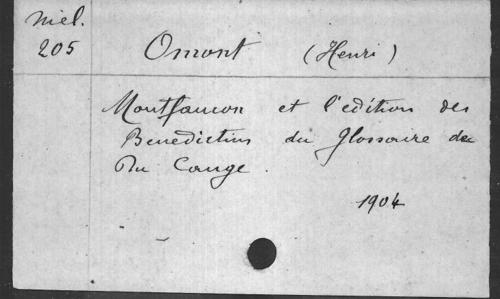 Miel. 
205
Omont (Henri)
Montfaucon et l'edition des
Benedictins du Glossaire de
Du Cange.
1904